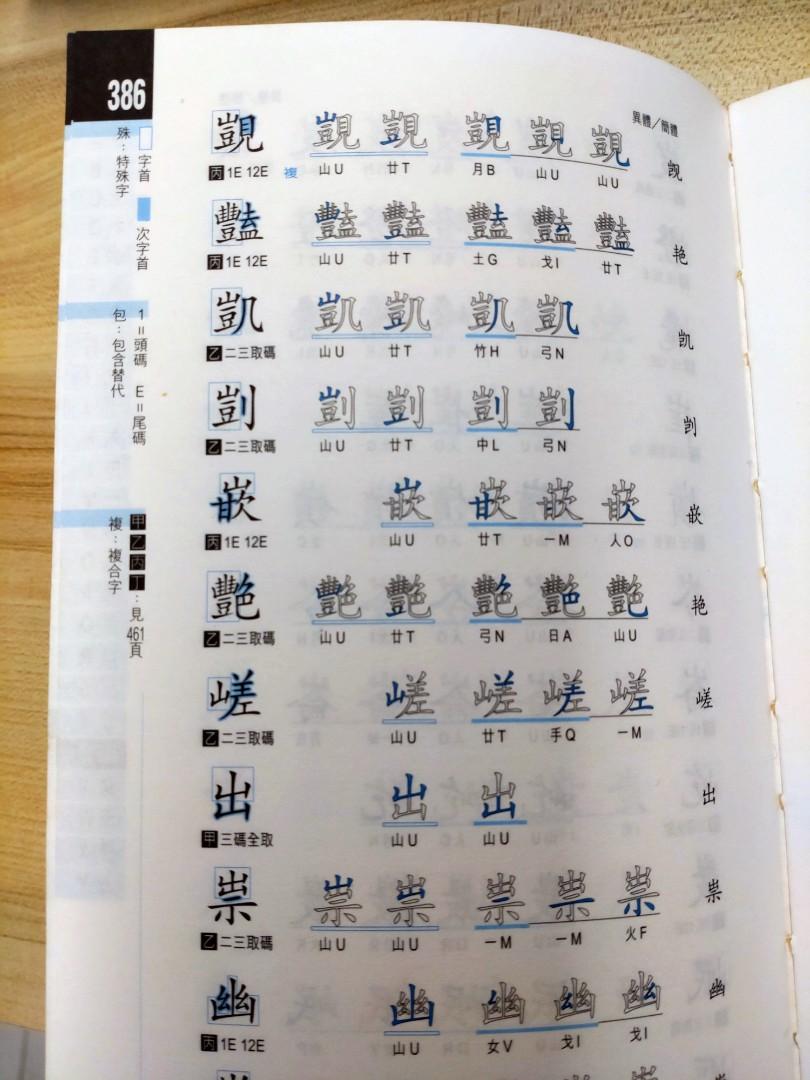 386
殊：特殊字
字首
次字首
包：包含替代
1＝頭碼 E＝尾碼
複：複合字
甲乙丙丁：見461頁
異體／簡體
覬 覬 覬 覬 覬 覬 觊
丙 1E 12E 複 山U 廿T 月B 山U 山U
豔 豔 豔 豔 豔 豔 艳
丙 1E 12E 山U 廿T 土G 戈I 廿T
凱 凱 凱 凱 凱 凯
乙 二三取碼 山U 廿T 竹H 弓N
剴 剴 剴 剴 剴 剀
乙 二三取碼 山U 廿T 中L 弓N
嵌 嵌 嵌 嵌 嵌 嵌
丙 1E 12E 山U 廿T 一M 人O
艷 艷 艷 艷 艷 艷 艳
乙 二三取碼 山U 廿T 弓N 日A 山U
嵯 嵯 嵯 嵯 嵯 嵯
乙 二三取碼 山U 廿T 手Q 一M
出 出 出 出
甲 三碼全取 山U 山U
祟 祟 祟 祟 祟 祟 祟
乙 二三取碼 山U 山U 一M 一M 火F
幽 幽 幽 幽 幽 幽
丙 1E 12E 山U 女V 戈I 戈I